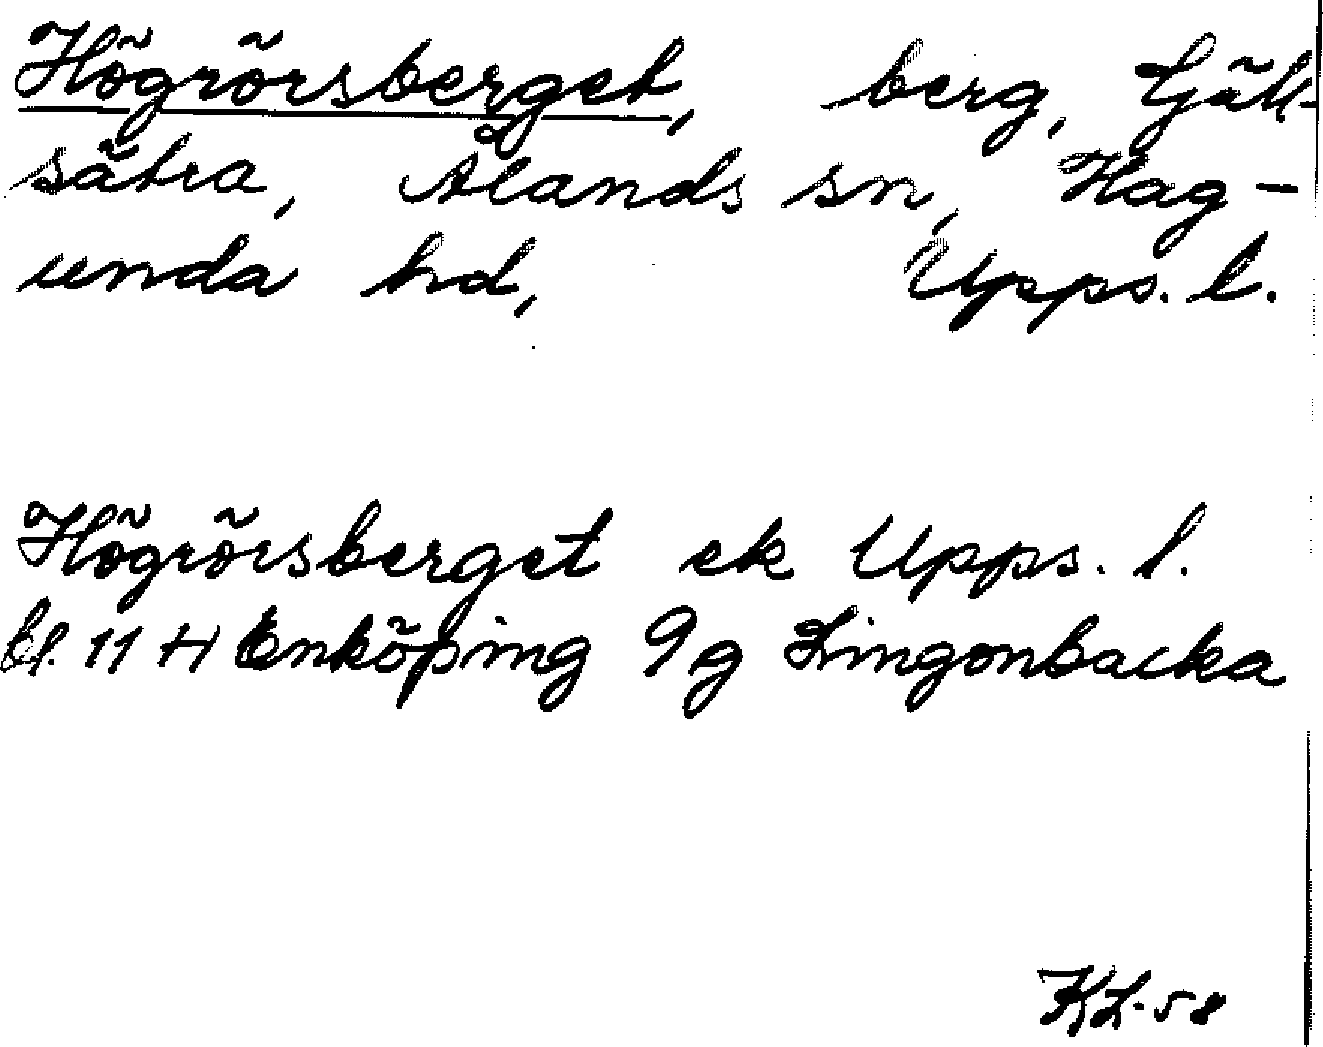 Högrörsberget, berg, Gjäll-
sätra, Ålands sn, Hag-
unda hd, Upps. l.
Högrörsberget ek Upps. l.
bl. 11 H Enköping 9g Lingonbacka
KL-58